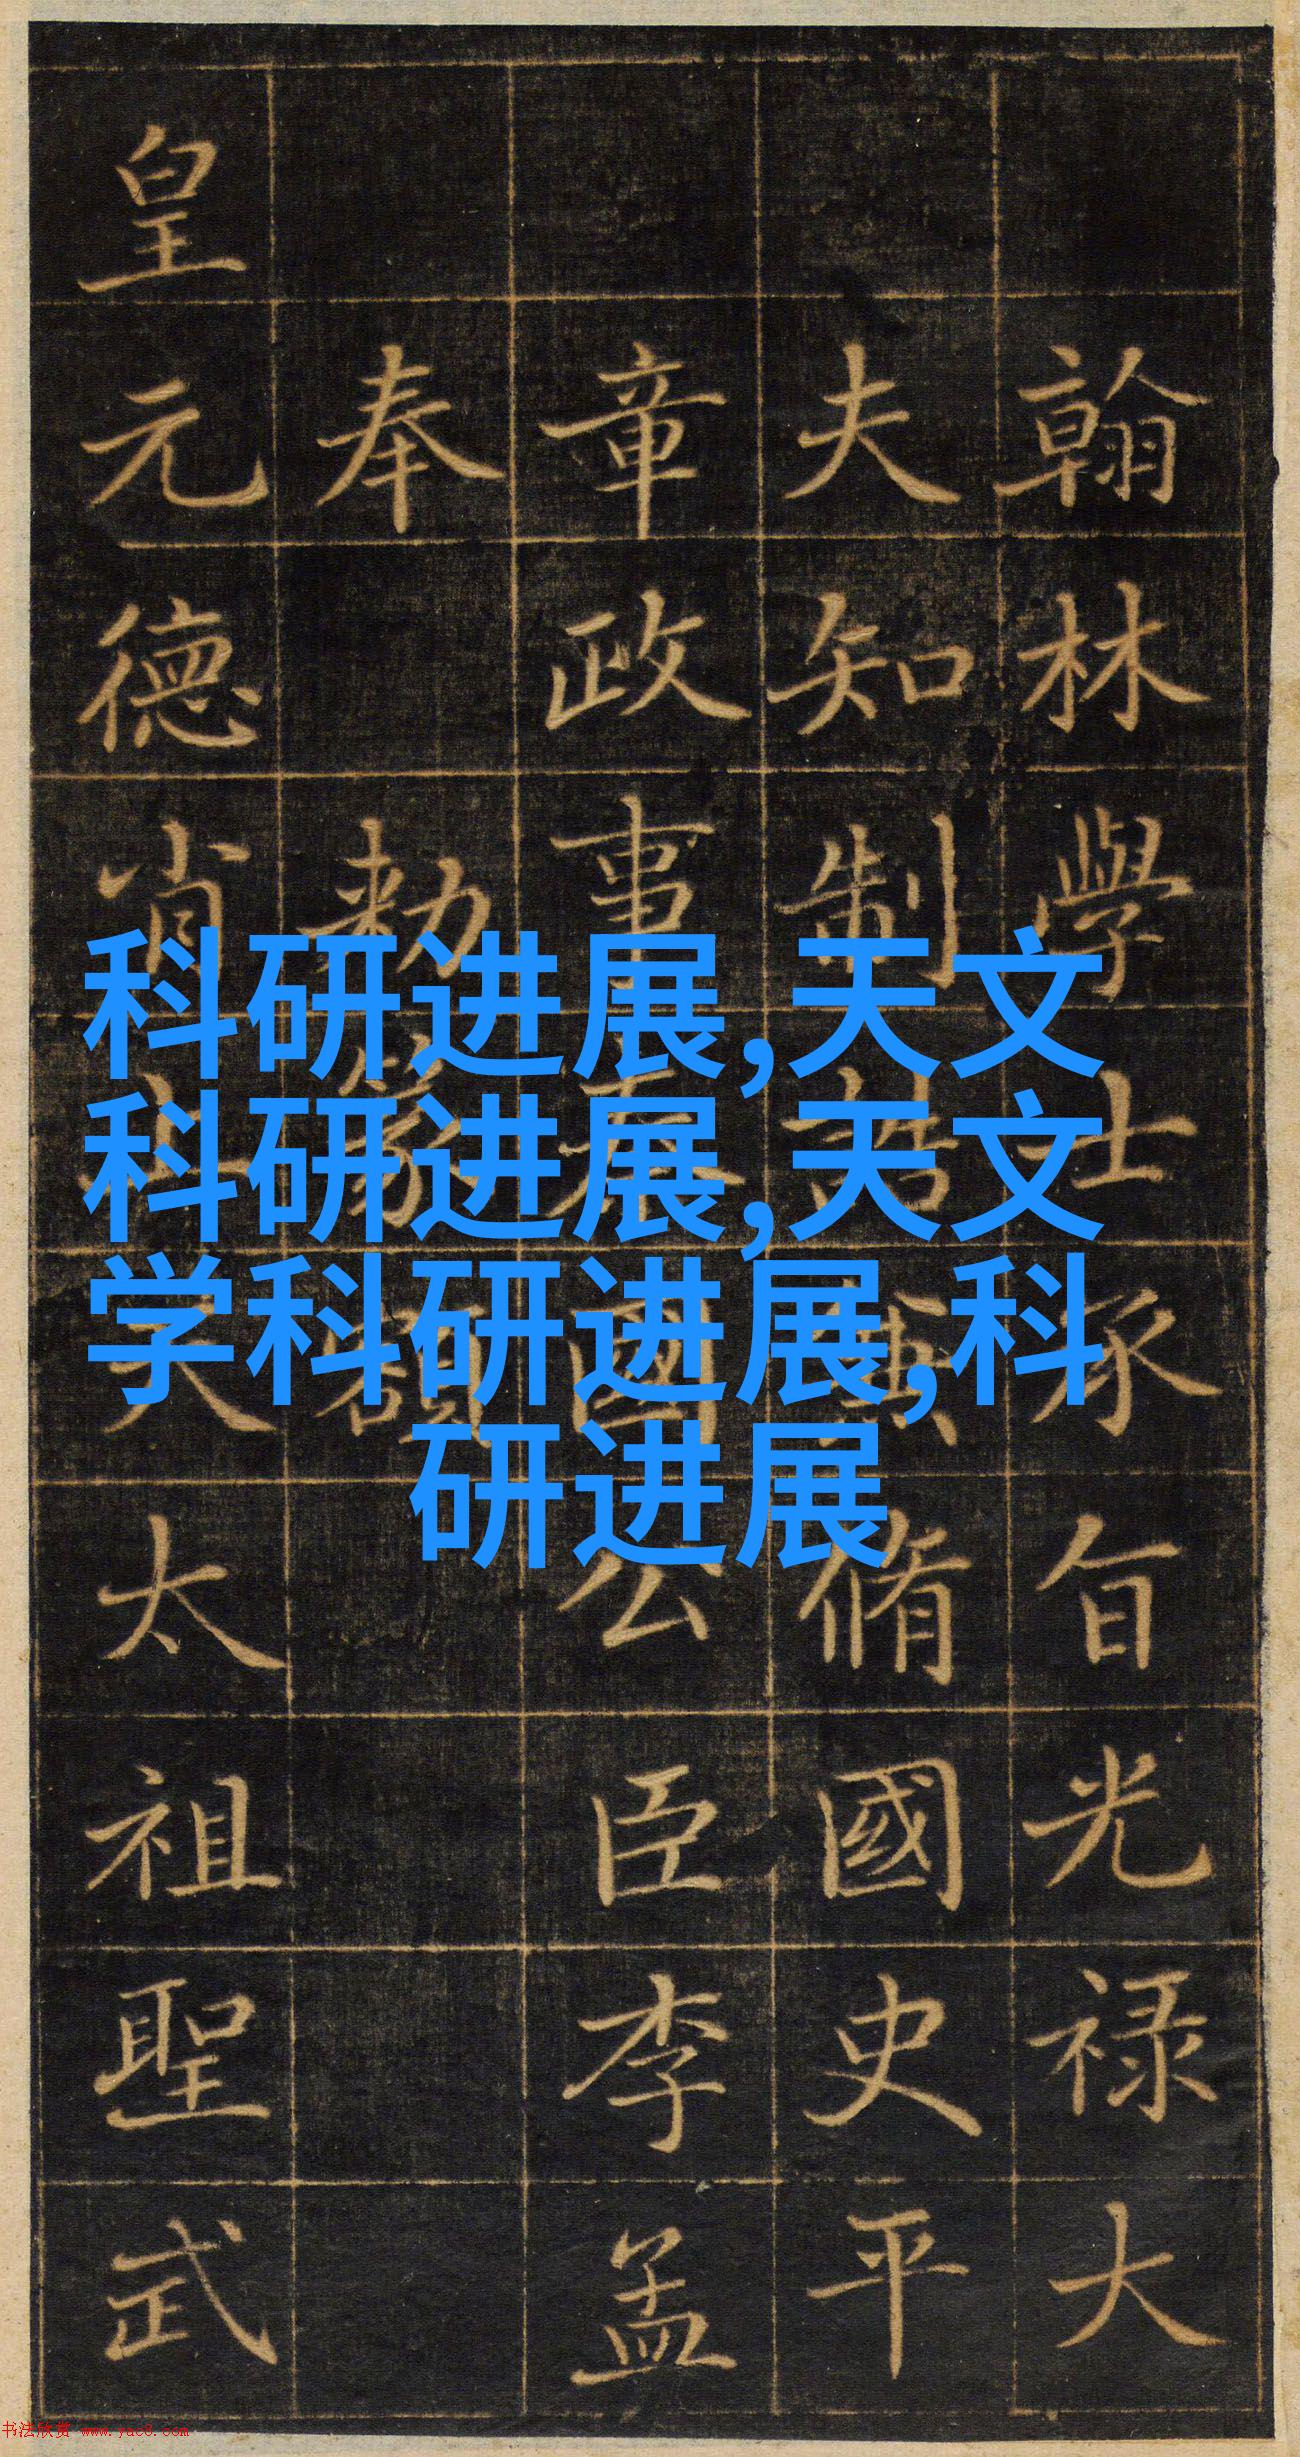 翰林學士承旨光禄大
夫知制誥兼脩國史平
章政事秦國公臣李孟
奉 勑篆額
皇元德肖天太祖聖武
科研进展,天文
科研进展,天文
学科研进展,科
研进展
书法欣赏 www.yac8.com